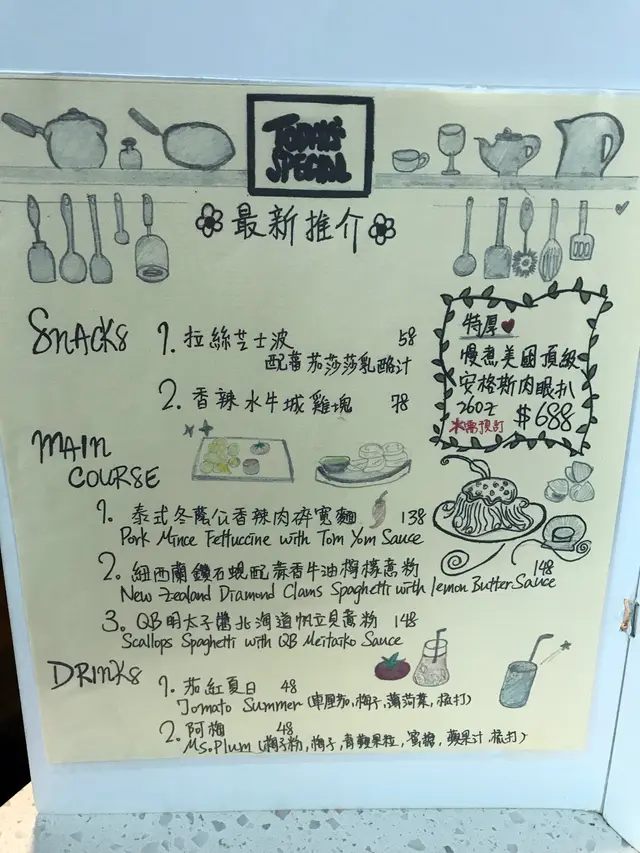 TODAYS'
SPECIAL
最新推介
SNACKS
1. 拉絲芝士波 58
配蕃茄莎莎乳酪汁
2. 香辣水牛城雞塊 78
特厚
慢煮美國頂級
安格斯肉眼扒
26OZ $688
*需預訂
MAIN
COURSE
1. 泰式冬蔭公香辣肉碎寬麵 138
Pork Mince Fettuccine with Tom Yom Sauce
2. 紐西蘭鑽石蜆配蒜香牛油檸檬意粉 148
New Zealand Diamond Clams Spaghetti with lemon Butter Sauce
3. QB明太子醬北海道帆立貝意粉 148
Scallops Spaghetti with QB Meitaiko Sauce
DRINKS
1. 茄紅夏日 48
Tomato Summer (車厘茄, 梅子, 薄荷葉, 梳打)
2. 阿梅 48
Ms.Plum (梅子粉, 梅子, 青蘋果粒, 蜜糖, 蘋果汁, 梳打)